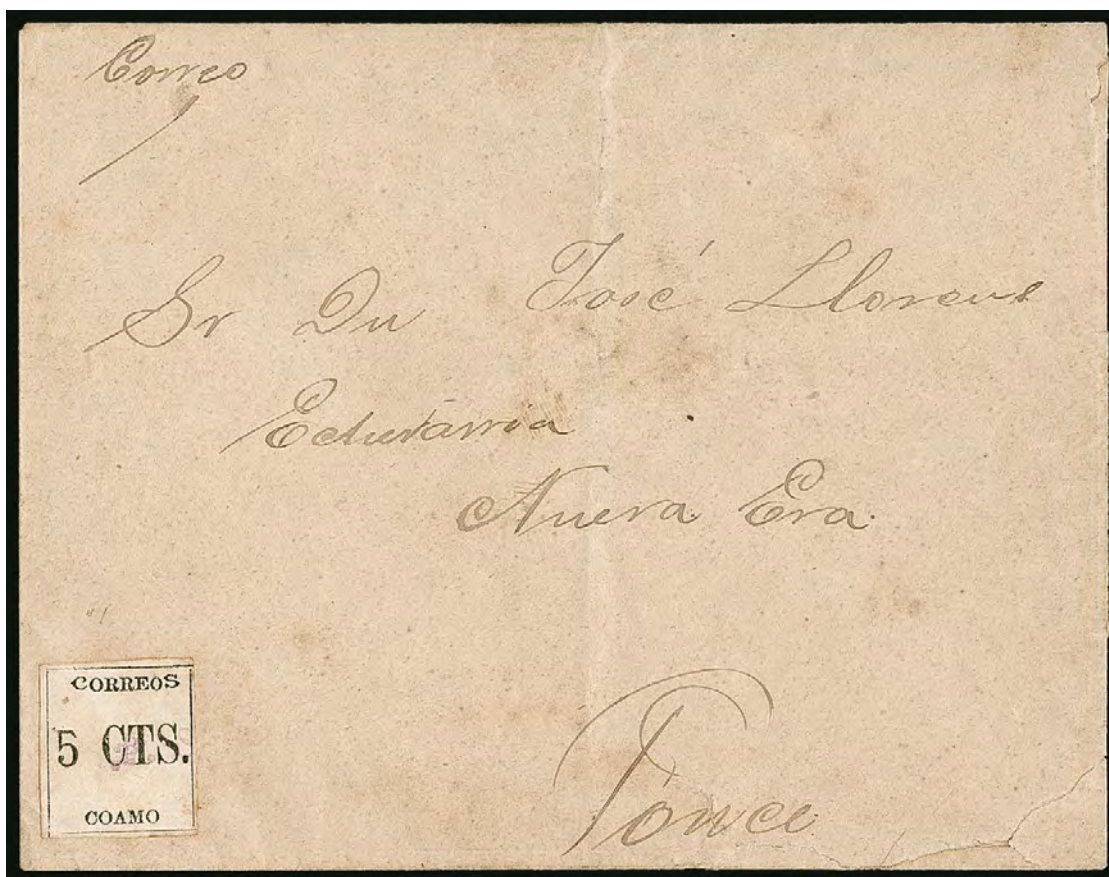 Correo
Sr Dn José Llorens
Echevarria
Nueva Era
Ponce
CORREOS
5 CTS.
COAMO